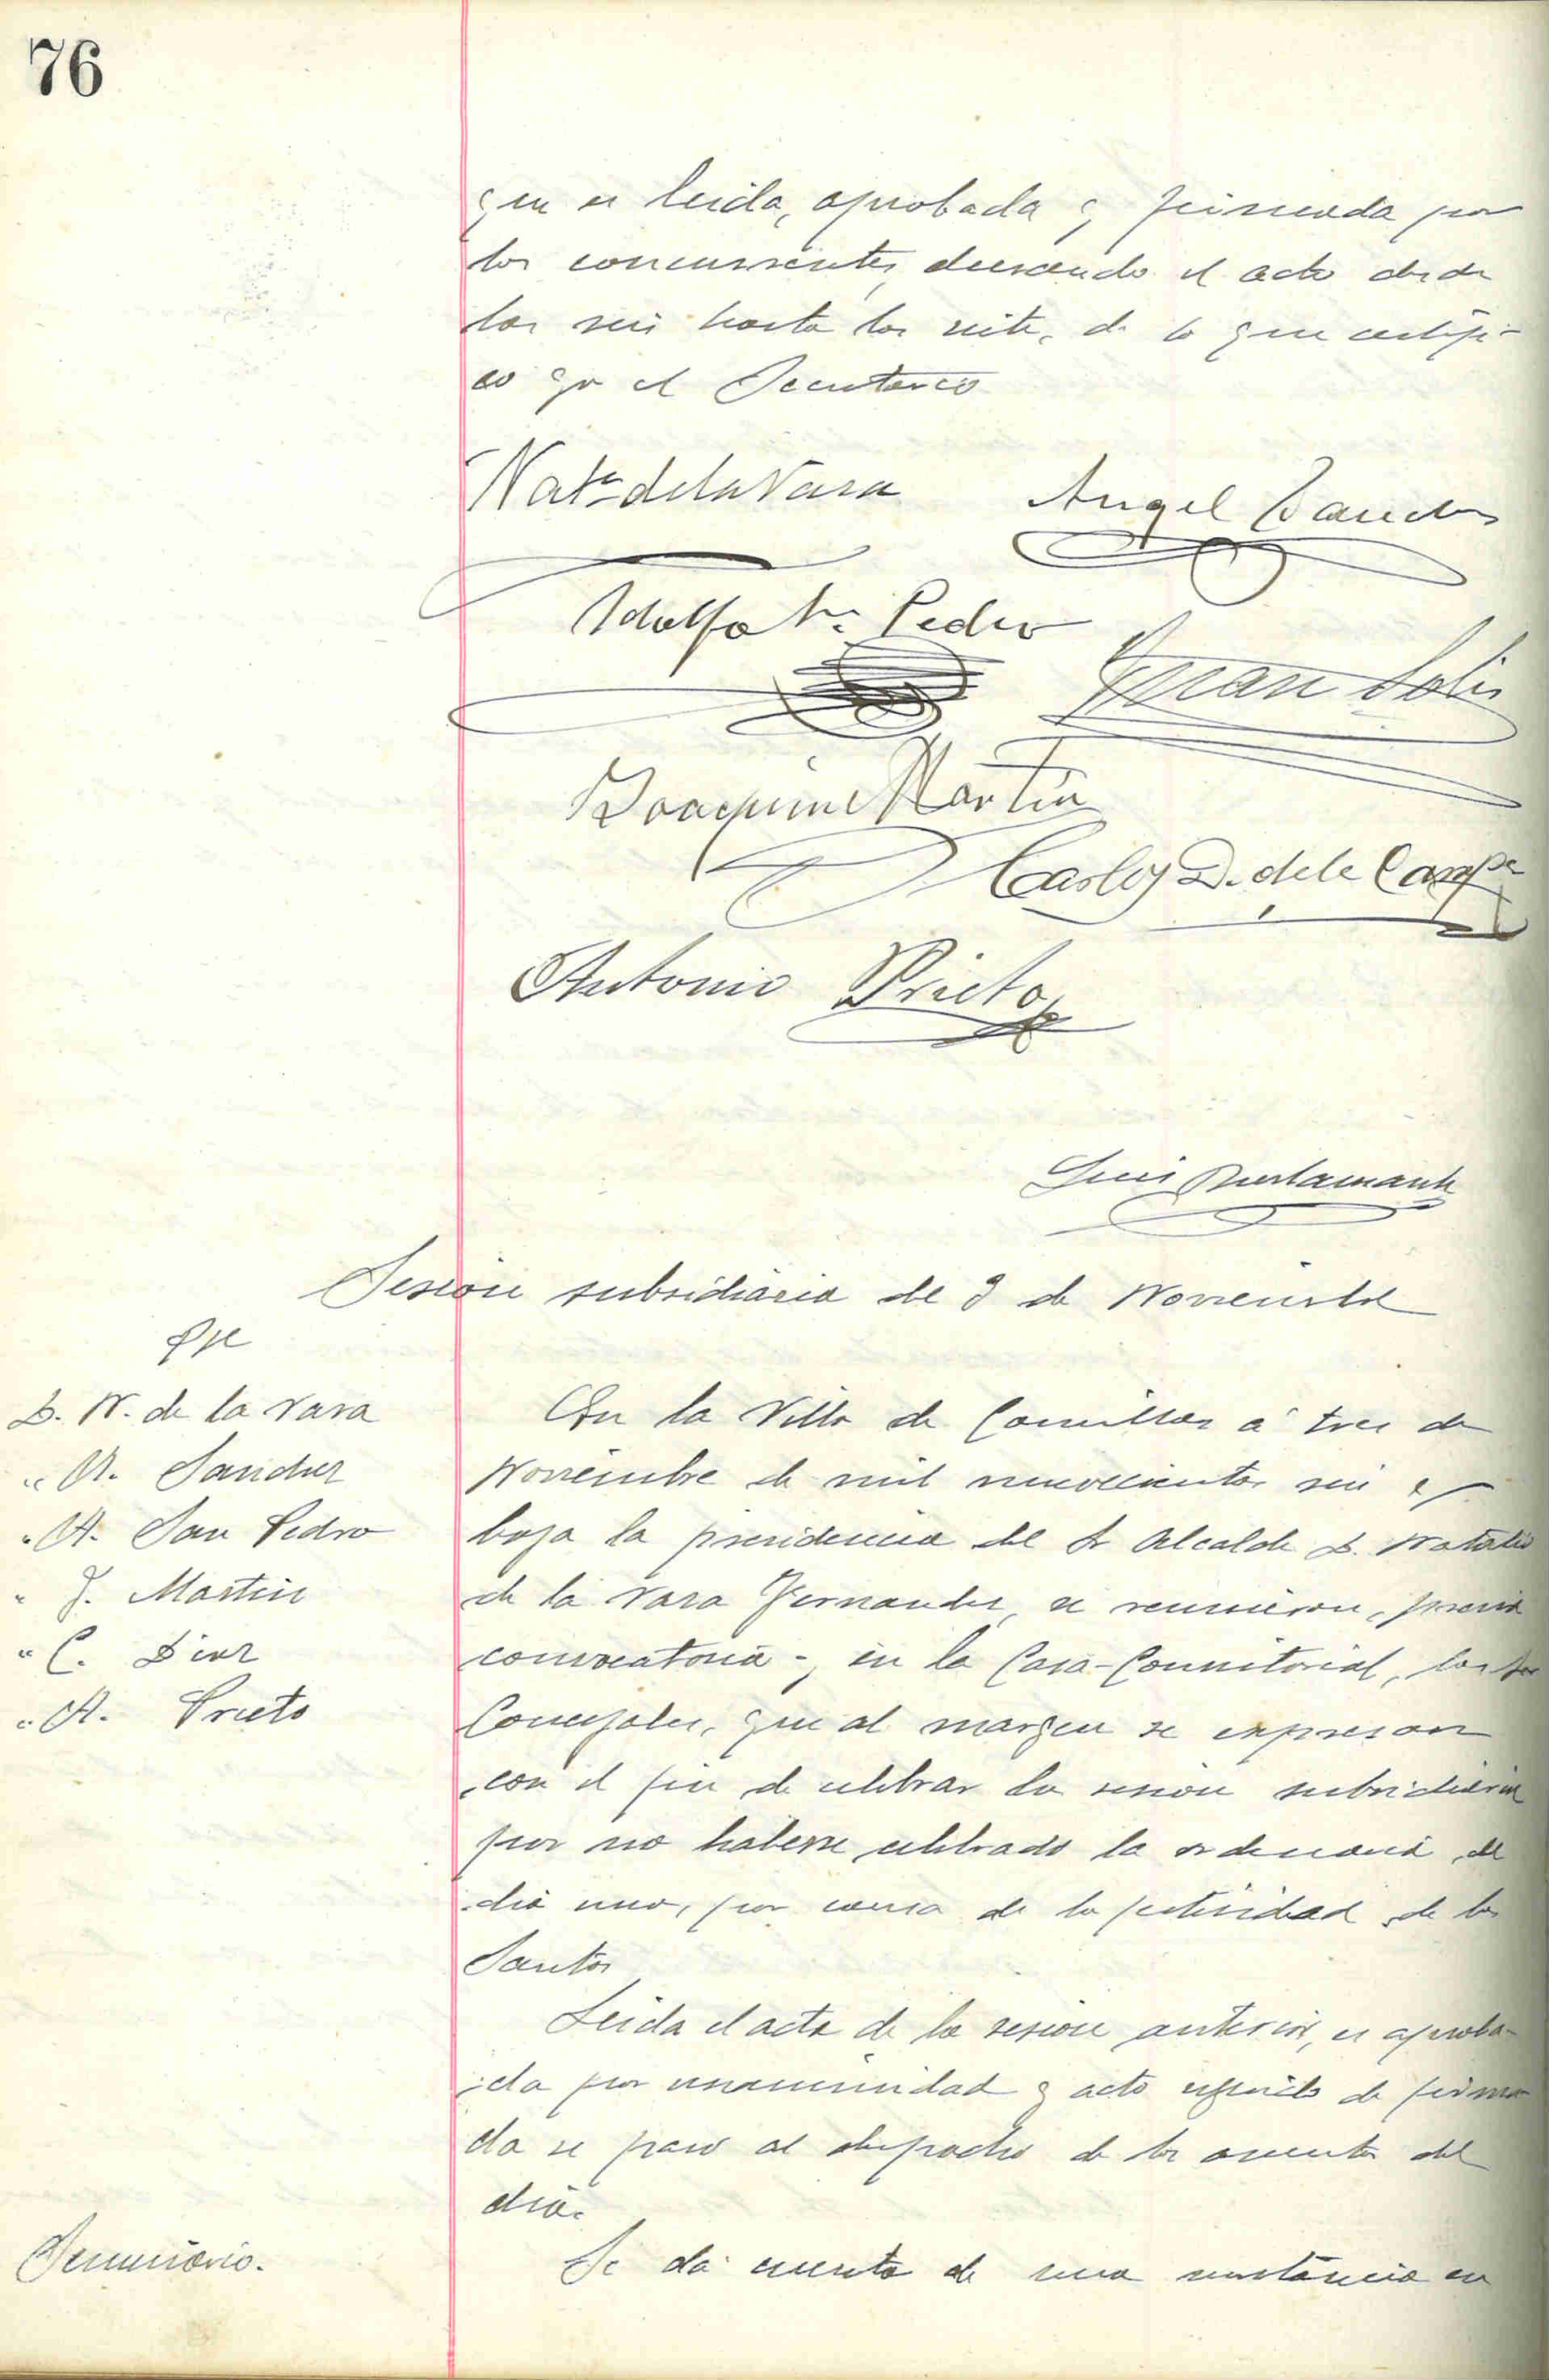 76
que es leida, aprobada y firmada por
los concurrentes, durando el acto desde
las seis hasta las siete, de lo que certifi-
co yo el Secretario
Nat.º de la Vara
Angel Sanchez
Adolfo Sn. Pedro
Juan Solis
Joaquin Martin
Carlos D. de la Campa
Antonio Prieto
Luis Bustamante
Sesion subsidiaria del 3 de Noviembre
D. N. de la Vara
" A. Sanchez
" A. San Pedro
" J. Martin
" C. Diaz
" A. Prieto
En la Villa de Comillas á tres de
Noviembre de mil novecientos seis y
bajo la presidencia del Sr Alcalde D. Natalio
de la Vara Fernandez, se reunieron, previa
convocatoria -, en la Casa-Consistorial, los Sres
Concejales, que al margen se expresan
con el fin de celebrar la sesion subsidiaria
por no haberse celebrado la ordinaria del
dia uno, por causa de la festividad de los
Santos
Leida el acta de la sesion anterior, es aproba-
da por unanimidad y acto seguido de firma
da se paso al despacho de los asuntos del
dia.
Seminario.
Se da cuenta de una instancia en